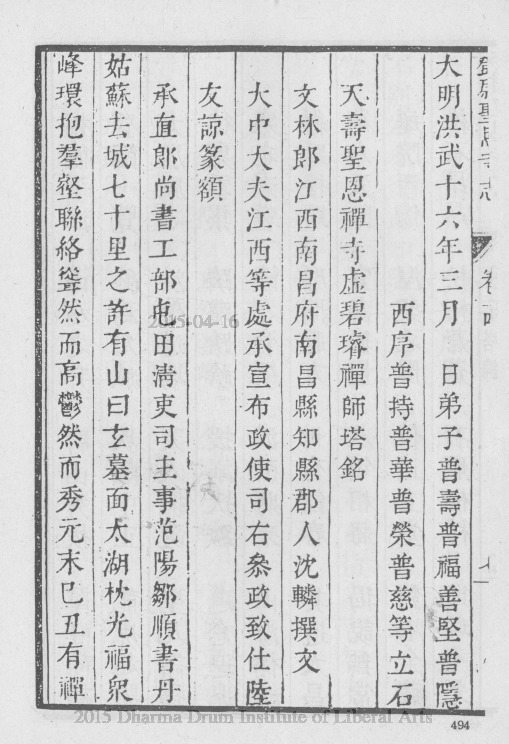 大明洪武十六年三月　日弟子普壽普福善堅普隱
西序普持普華普榮普慈等立石
天壽聖恩禪寺虛碧璿禪師塔銘
文林郎江西南昌府南昌縣知縣郡人沈轔撰文
大中大夫江西等處承宣布政使司右叅政致仕陸
友諒篆額
承直郎尚書工部屯田淸吏司主事范陽鄒順書丹
姑蘇去城七十里之許有山曰玄墓面太湖枕光福衆
峰環抱羣壑聯絡聳然而高鬱然而秀元末巳丑有禪
2015-04-16
2015 Dharma Drum Institute of Liberal Arts
494